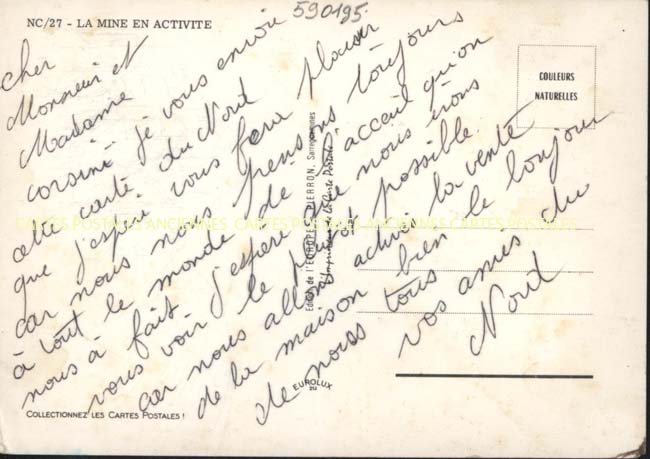 590195
NC/27 - LA MINE EN ACTIVITE
COULEURS
NATURELLES
cher
Monsieur et
Madame
corsini je vous envoie
cette carte du Nord
que j'espère vous fera plaisir
car nous nous pensons toujours
à tout le monde de l'acceuil qu'on
nous à fait j'espère que nous irons
vous voir le plus tôt possible
car nous allons activé la vente
de la maison bien le bonjour
de nous tous
vos amis du
Nord
Edition de l'EUROPE PIERRON, Sarreguemines
CARTES POSTALES ANCIENNES CARTES POSTALES ANCIENNES CARTES POSTALES
EUROLUX
COLLECTIONNEZ LES CARTES POSTALES !